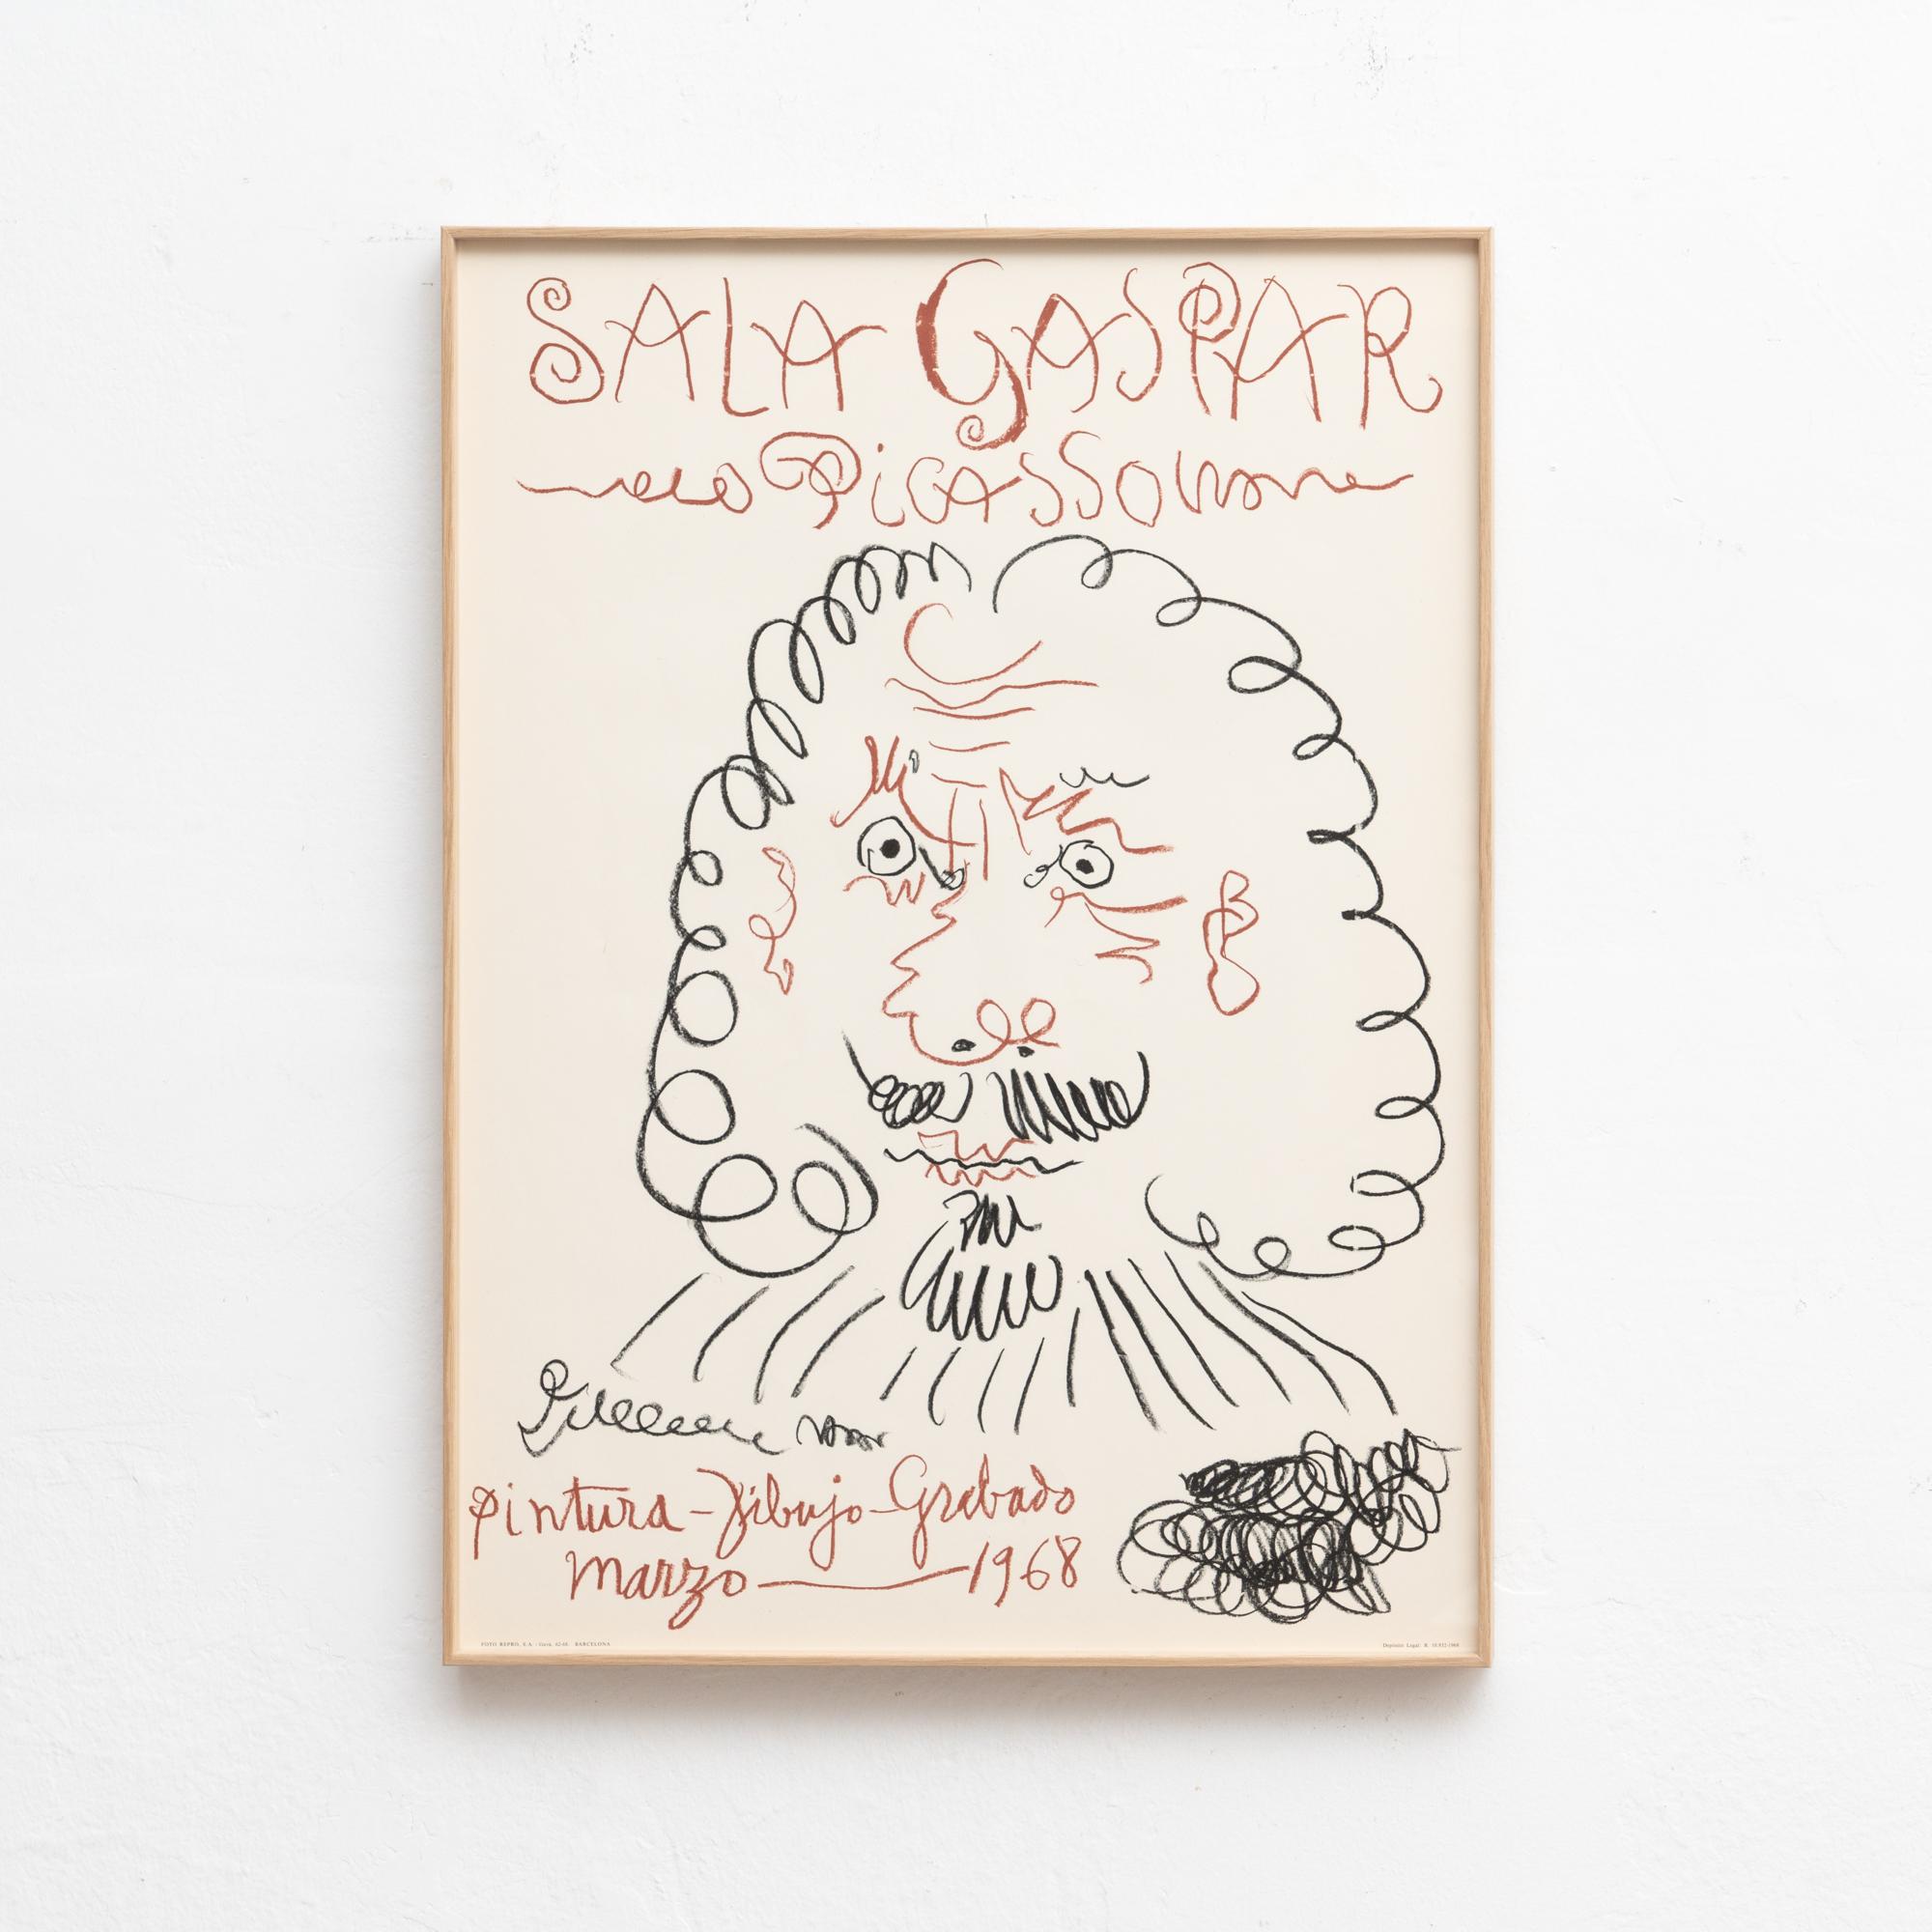 SALA GASPAR
Picasso
pintura - Dibujo - Grabado
Marzo — 1968
FOTO REPRO, S.A. BARCELONA
Depósito Legal: B.